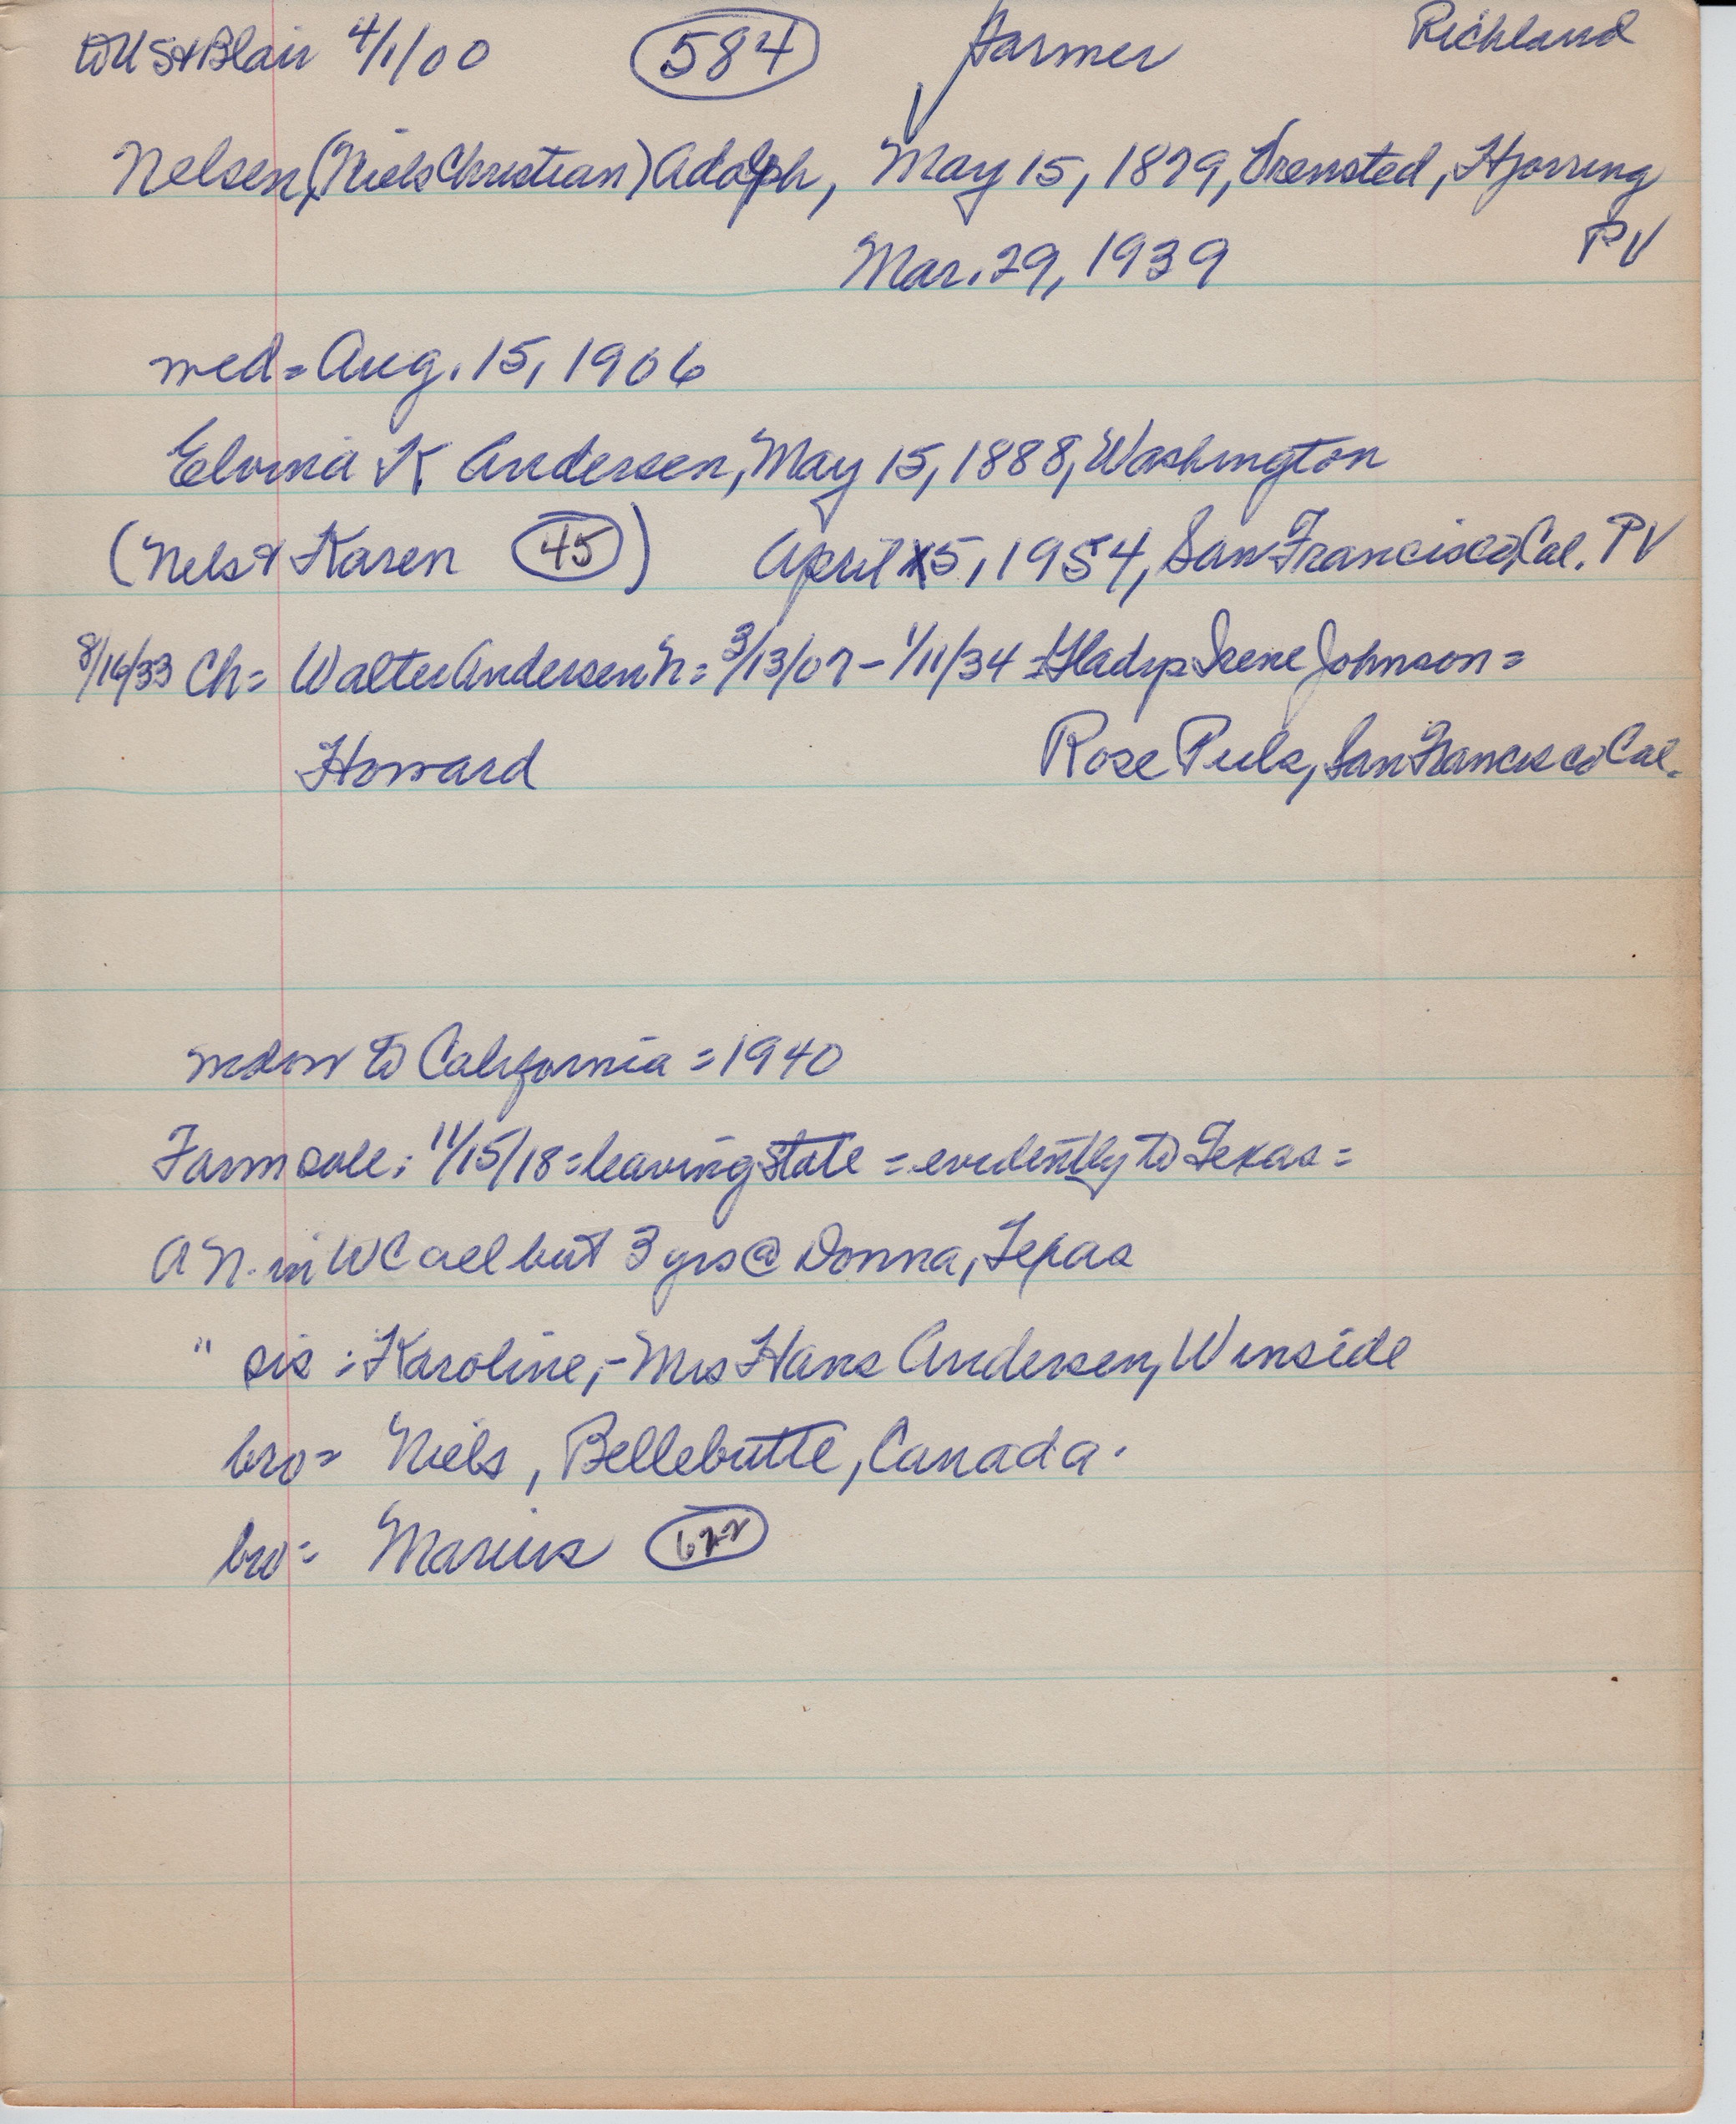 DU S & Blair 4/1/00 584 Farmer Richland
Nelsen, (Niels Christian) Adolph, May 15, 1879, Vrensted, Hjorring
Mar. 29, 1939 PV
wed = Aug. 15, 1906
Elvina K Andersen, May 15, 1888, Washington
(Nels & Karen 45) April 5, 1954, San Francisco, Cal. PV
8/16/33 Ch = Walter Andersen N = 3/13/07 - 1/11/34 = Gladys Irene Johnson =
Howard Rose Puls, San Francisco Cal.
widow to California = 1940
Farm sale: 11/15/18 = leaving state = evidently to Texas =
A N. in WC all but 3 yrs @ Donna, Texas
" sis: Karoline, - Mrs Hans Andersen, Winside
bro = Niels, Bellebutte, Canada.
bro = Marius 622